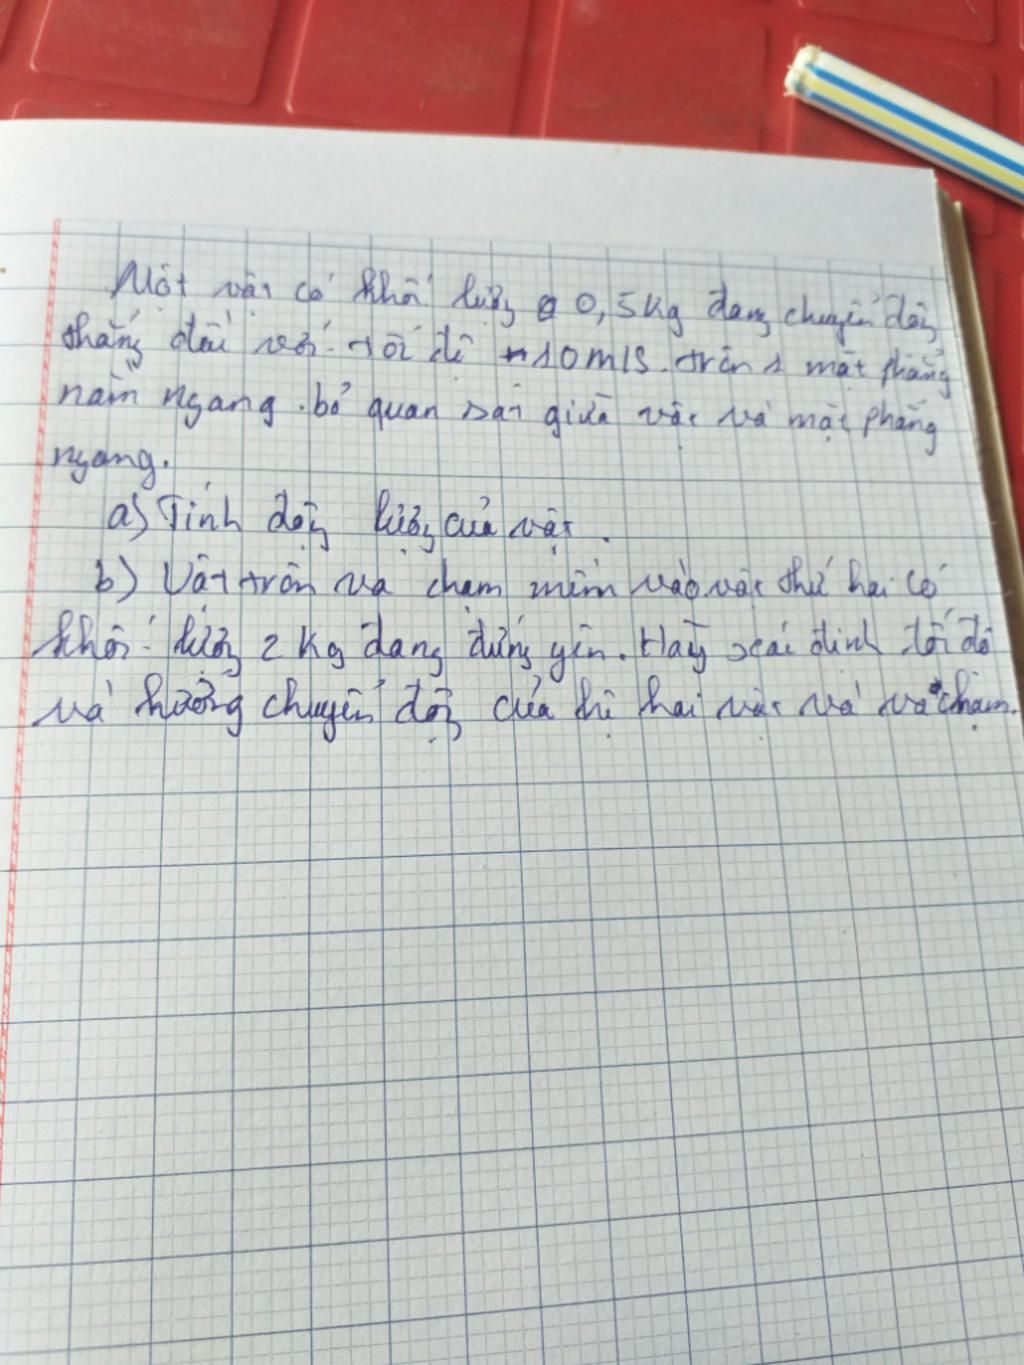 Một vật có khối lượng 0,5kg đang chuyển động
thẳng đều với tốc độ 10m/s. trên 1 mặt phẳng
nằm ngang. bỏ qua ma sát giữa vật và mặt phẳng
ngang.
a) Tính động lượng của vật.
b) Vật trên va chạm mềm vào vật thứ hai có
khối lượng 2 kg đang đứng yên. Hãy xác định tốc độ
và hướng chuyển động của hệ hai vật và va chạm.